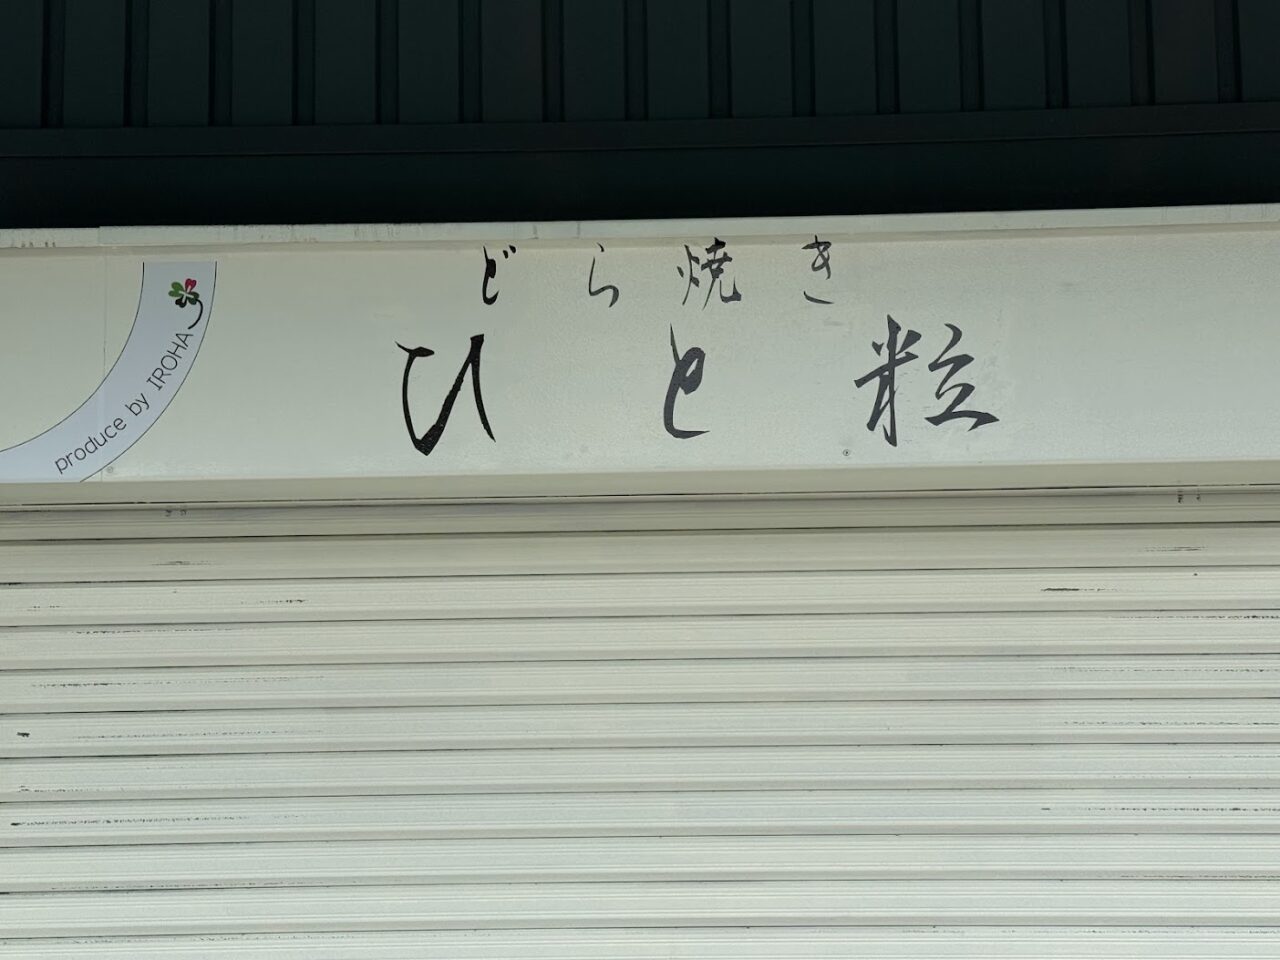 どら焼き
ひと粒
produce by IROHA